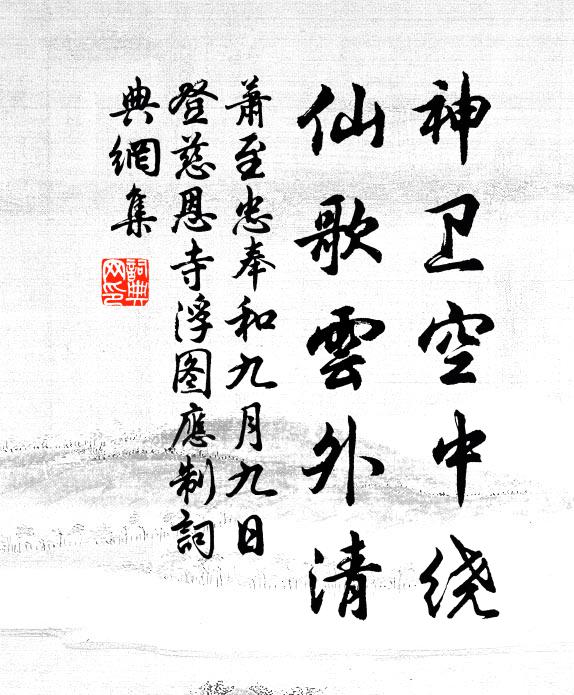 神卫空中绕
仙歌雲外清
萧至忠奉和九月九日
登慈恩寺浮图應制詞
典網集
詞典
网印